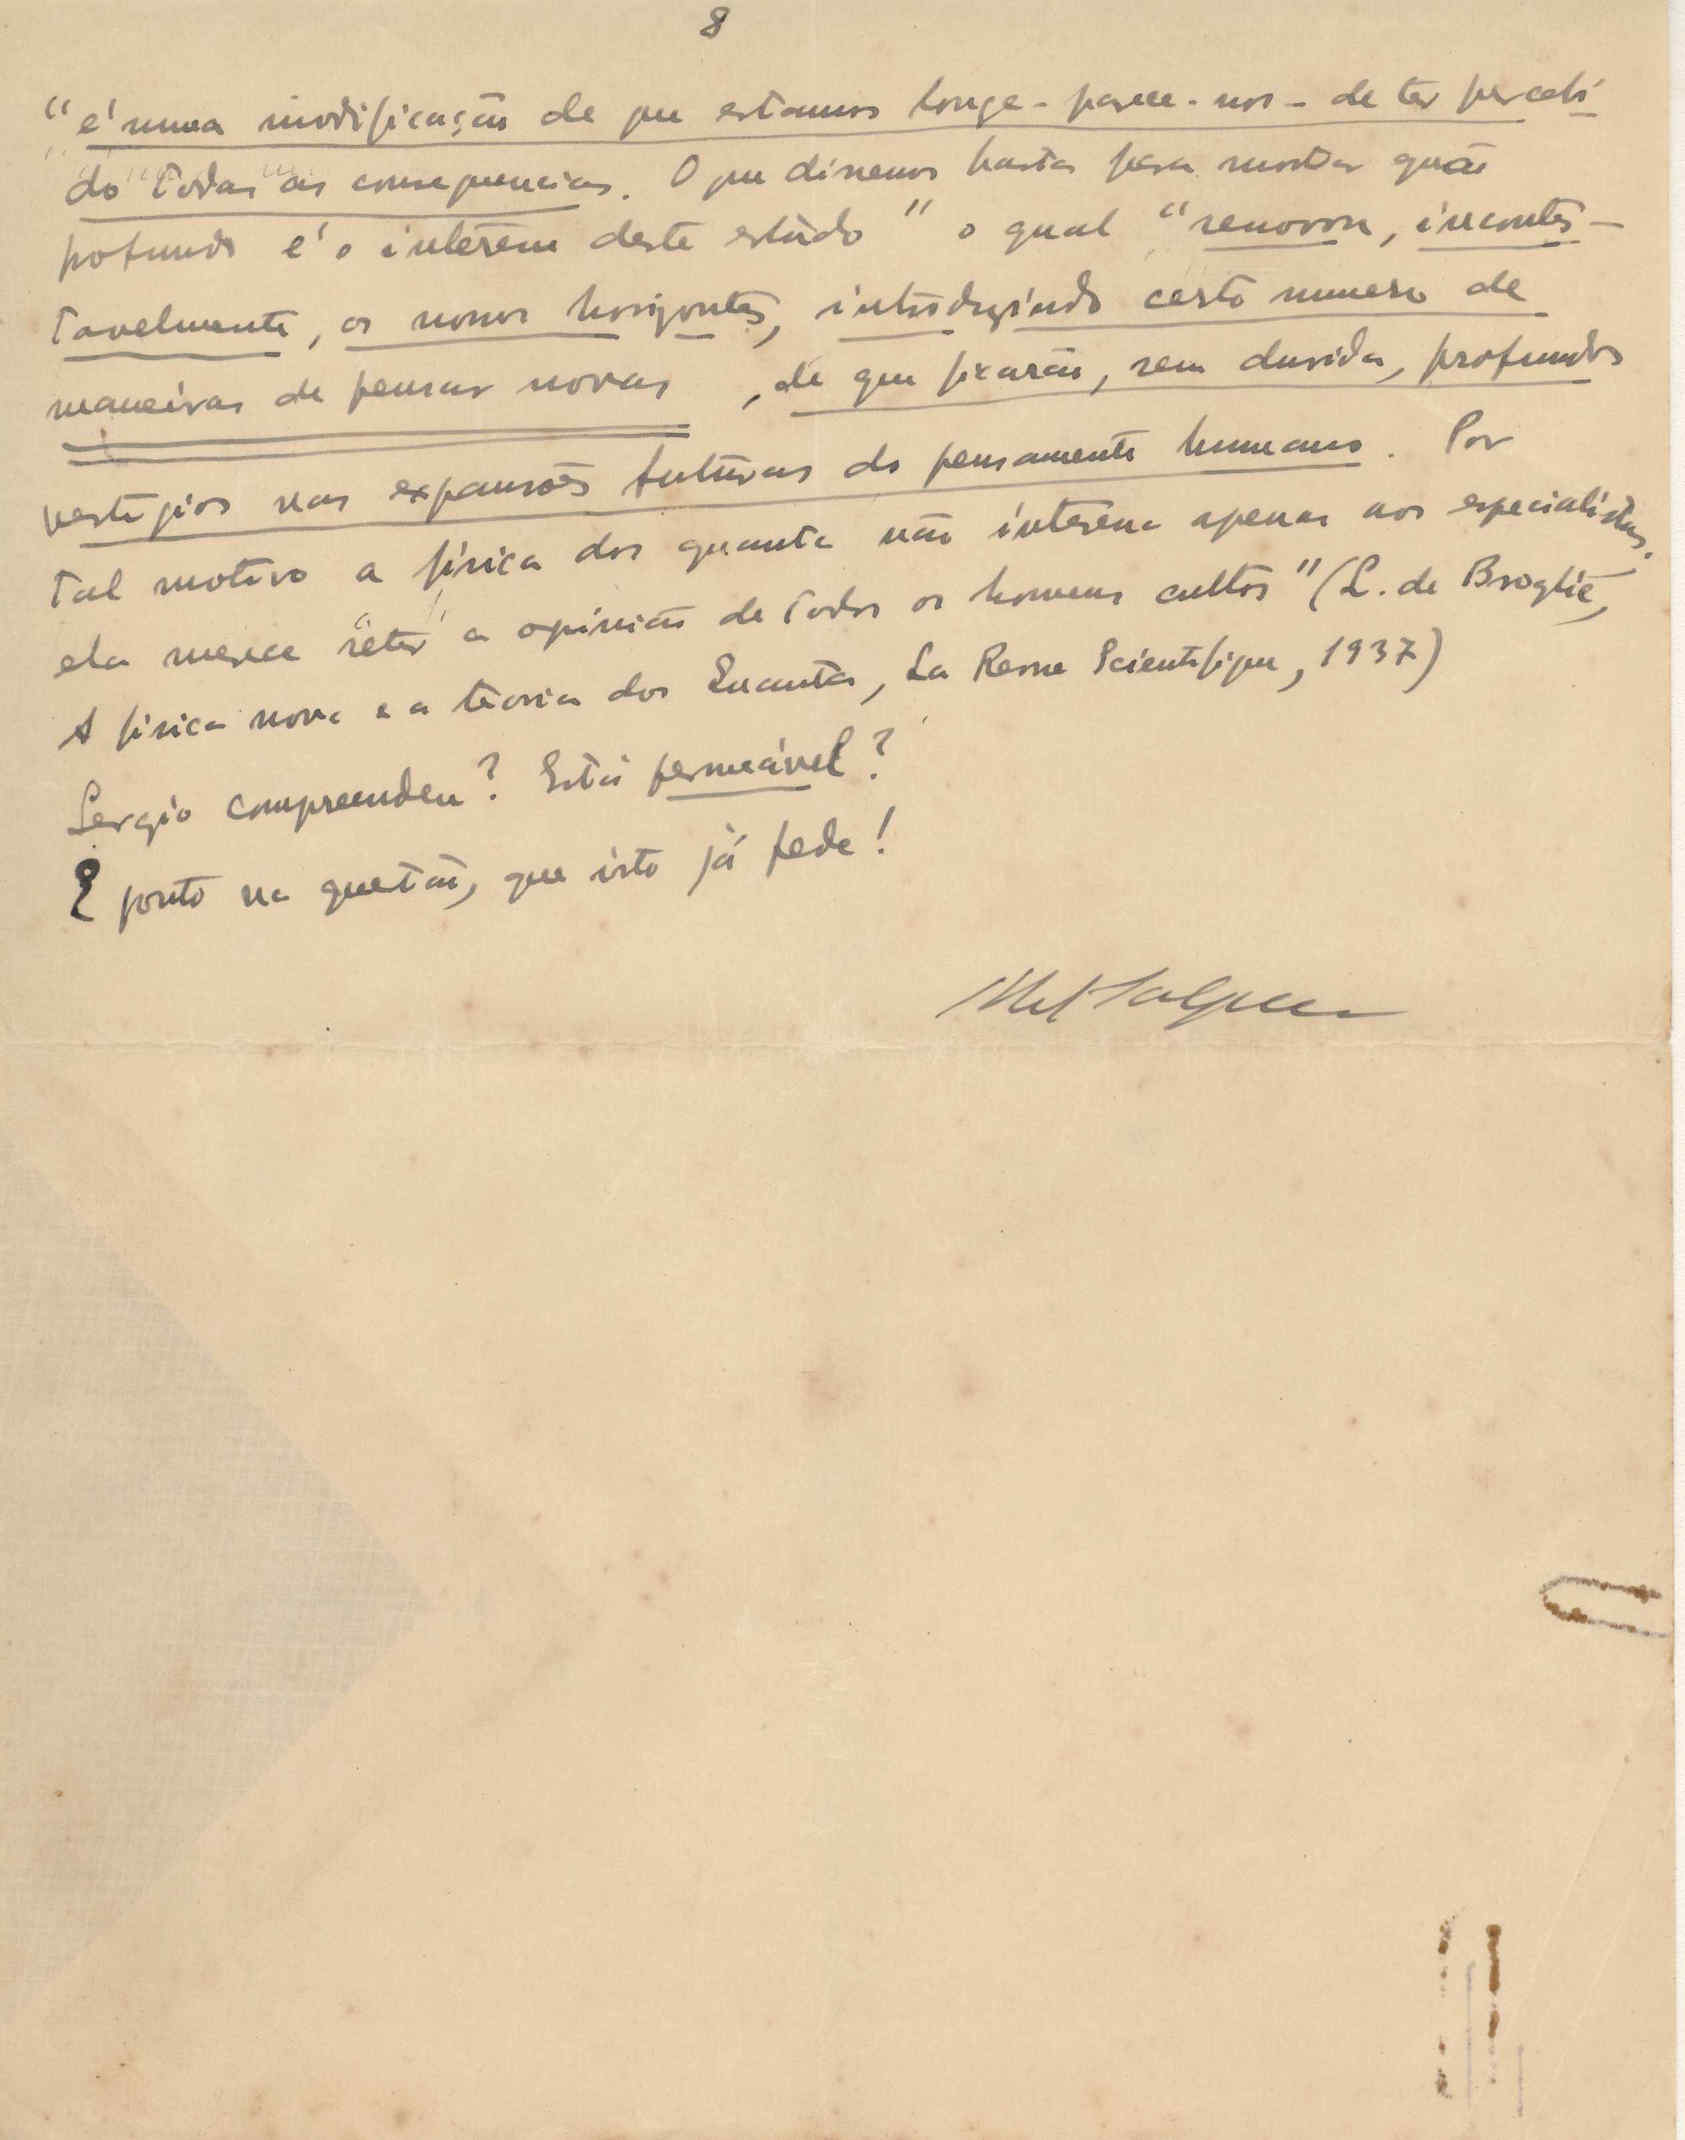 8
"é numa modificação de que estamos longe - parece-nos - de ter percebi
do todas as consequencias. O que dissemos basta para mostrar quão
profundo é o interêsse deste estudo" o qual "renovou, incontes-
tavelmente, os nossos horizontes, introduzindo certo numero de
maneiras de pensar novas, de que ficarão, sem duvida, profundos
vestigios nas expansões futuras do pensamento humano. Por
tal motivo a física dos quanta não interessa apenas aos especialistas.
ela merece "reter" a opinião de todos os homens cultos" (L. de Broglie,
A física nova e a teoria dos Quanta, La Revue Scientifique, 1937)
Sergio compreendeu? Está permeável?
E ponto na questão, que isto já fede!